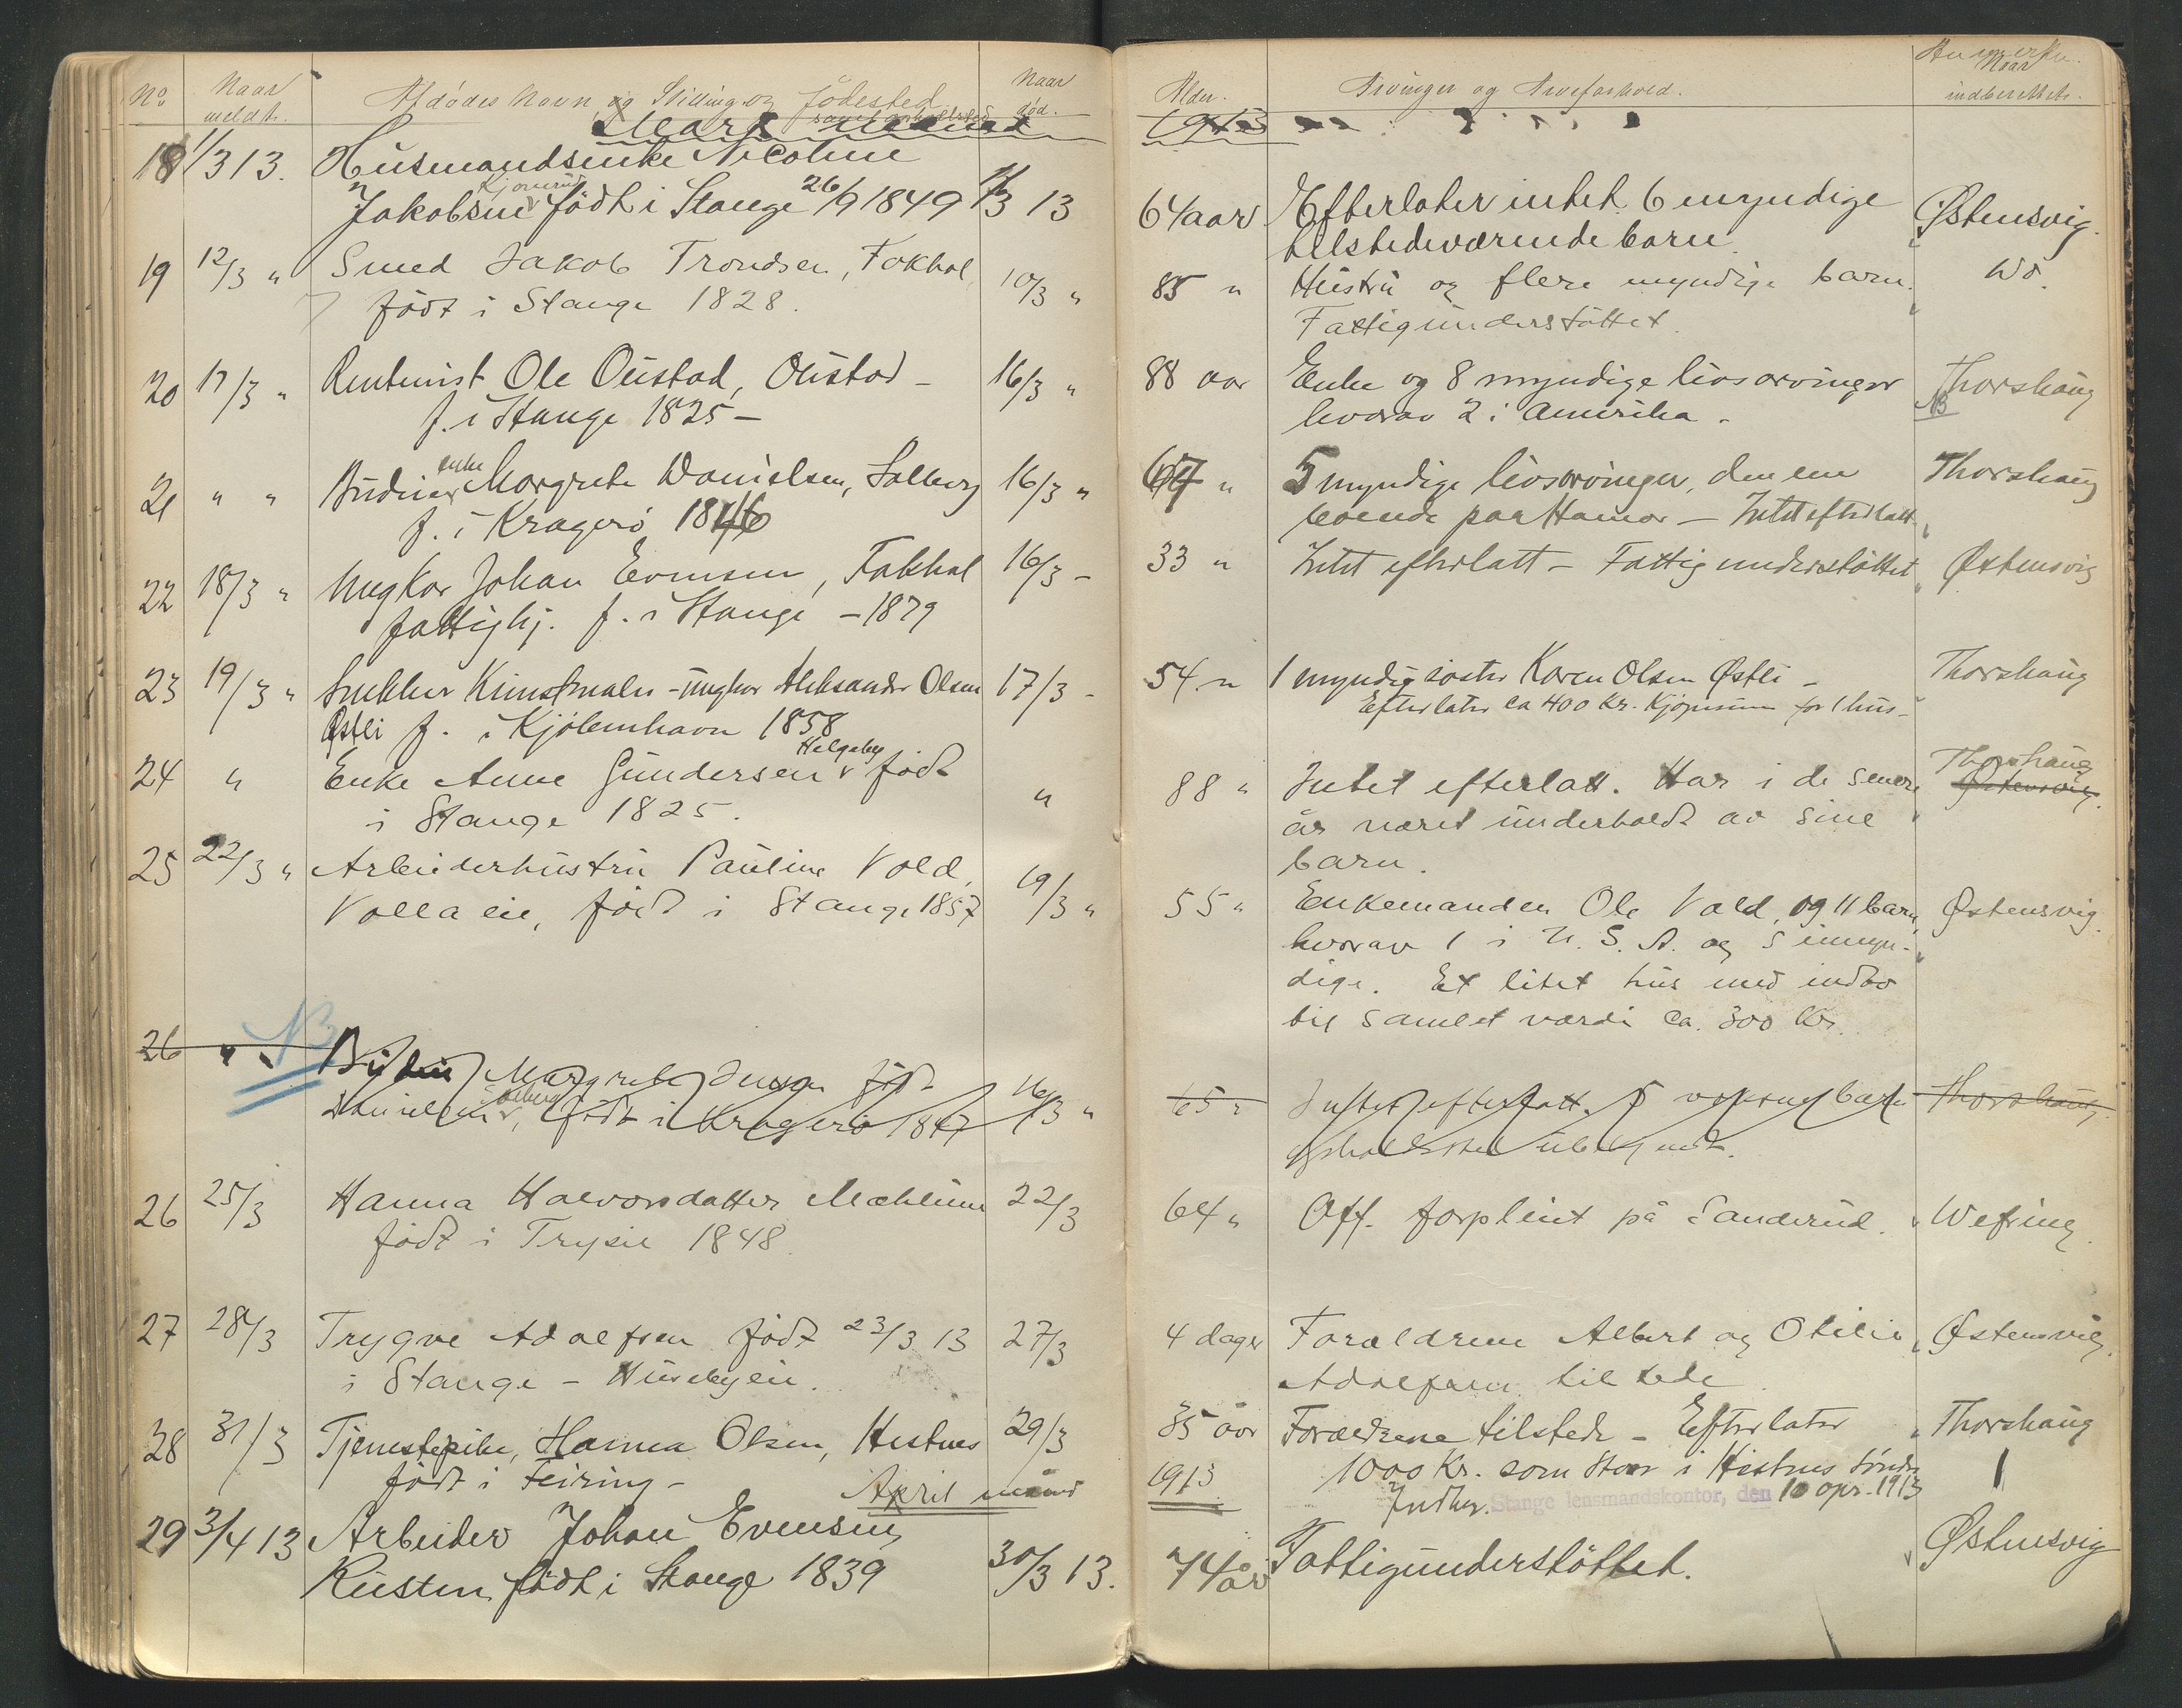 No Naar meldt. Afdødes Navn og Stilling og Fødested samt opholdssted Naar død. Alder. Arvinger og Arveforhold. Anmerkn. Naar indberettet.
Mars maaned 1913
18 11/3 13. Husmandsenke Nicoline
Jakobsen Kjonerud født i Stange 26/9 1849 11/3 13 64 aar Efterlater intet. 6 myndige Østensvig.
tilstedeværende barn.
19 12/3 " Smed Jakob Trondsen, Fokhol 10/3 " 85 " Hustru og flere myndige barn. do.
født i Stange 1828. Fattigunderstøttet.
20 17/3 " Rentenist Ole Oustad, Oustad - 16/3 " 88 aar Enke og 8 myndige livsarvinger Thorshaug
f. i Stange 1825 - hvorav 2 i Amerika. NB
21 " " Budeie enke Margrete Danielsen, Solberg 16/3 " 67 " 5 myndige livsarvinger, den ene Thorshaug
f. i Kragerø 1846 boende paa Hamar - Intet efterlatt
22 18/3 " Ungkar Johan Evensen, Fokhol 16/3 - 33 " Intet efterlatt - Fattigunderstøttet Østensvig
fattighj. f. i Stange - 1879
23 19/3 " Snekker Kunstmaler - ungkar Aleksander Olsen 17/3 - 54 " 1 myndig søster Karen Olsen Østli - Thorshaug
Østli f. i Kjøbenhavn 1858 Efterlater ca 400 kr. Kjøpesum for 1 hus -
24 " Enke Anne Gundersen Helgeby født " 88 " Intet efterlatt. Har i de senere Thorshaug Østensvig.
i Stange 1825. år været underholdt av sine
barn.
25 22/3 " Arbeiderhustru Pauline Vold, 19/3 " 55 " Enkemanden Ole Vold, og 11 barn, Østensvig.
Volla eie, født i Stange 1857 hvorav 1 i U.S.A. og 5 umyn-
dige. Et litet hus med indbo
til samlet værdi ca. 300 kr.
26 " " NB Budeie Margrete Jensen født 65 " Intet efterlatt. 5 voksne barn Thorshaug.
Danielsen Solberg, født i Kragerø 1847 16/3 " opholdssted ubekjendt.
26 25/3 Hanna Halvorsdatter Mæhlum 22/3 64 " Off. forpleiet på Sanderud. Wefring.
født i Trysil 1848.
27 28/3 Trygve Adolfsen født 23/3 13 27/3 4 dager Forældrene Albert og Otilie Østensvig.
i Stange - Husebyeie. Adolfsen tilstede
28 31/3 Tjenestepike, Hanna Olsen, Hestnes 29/3 35 aar Forældrene tilstede - Efterlater Thorshaug
født i Feiring - 1000 Kr. som staar i Hestnes søndre
April måned 1913 Indber. Stange lensmandskontor, den 10 apr. 1913
29 3/4 13 Arbeider Johan Evensen
Rusten født i Stange 1839 30/3 13. 74 år Fattigunderstøttet. Østensvig